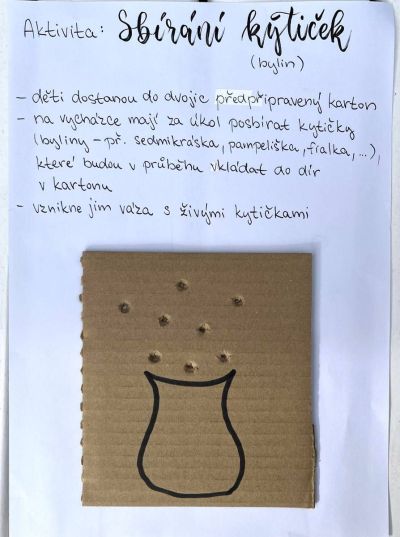 Aktivita: Sbírání kytiček
(bylin)
- děti dostanou do dvojic předpřipravený karton
- na vycházce mají za úkol posbírat kytičky
(byliny - př. sedmikráska, pampeliška, fialka, ...),
které budou v průběhu vkládat do děr
v kartonu
- vznikne jim váza s živými kytičkami